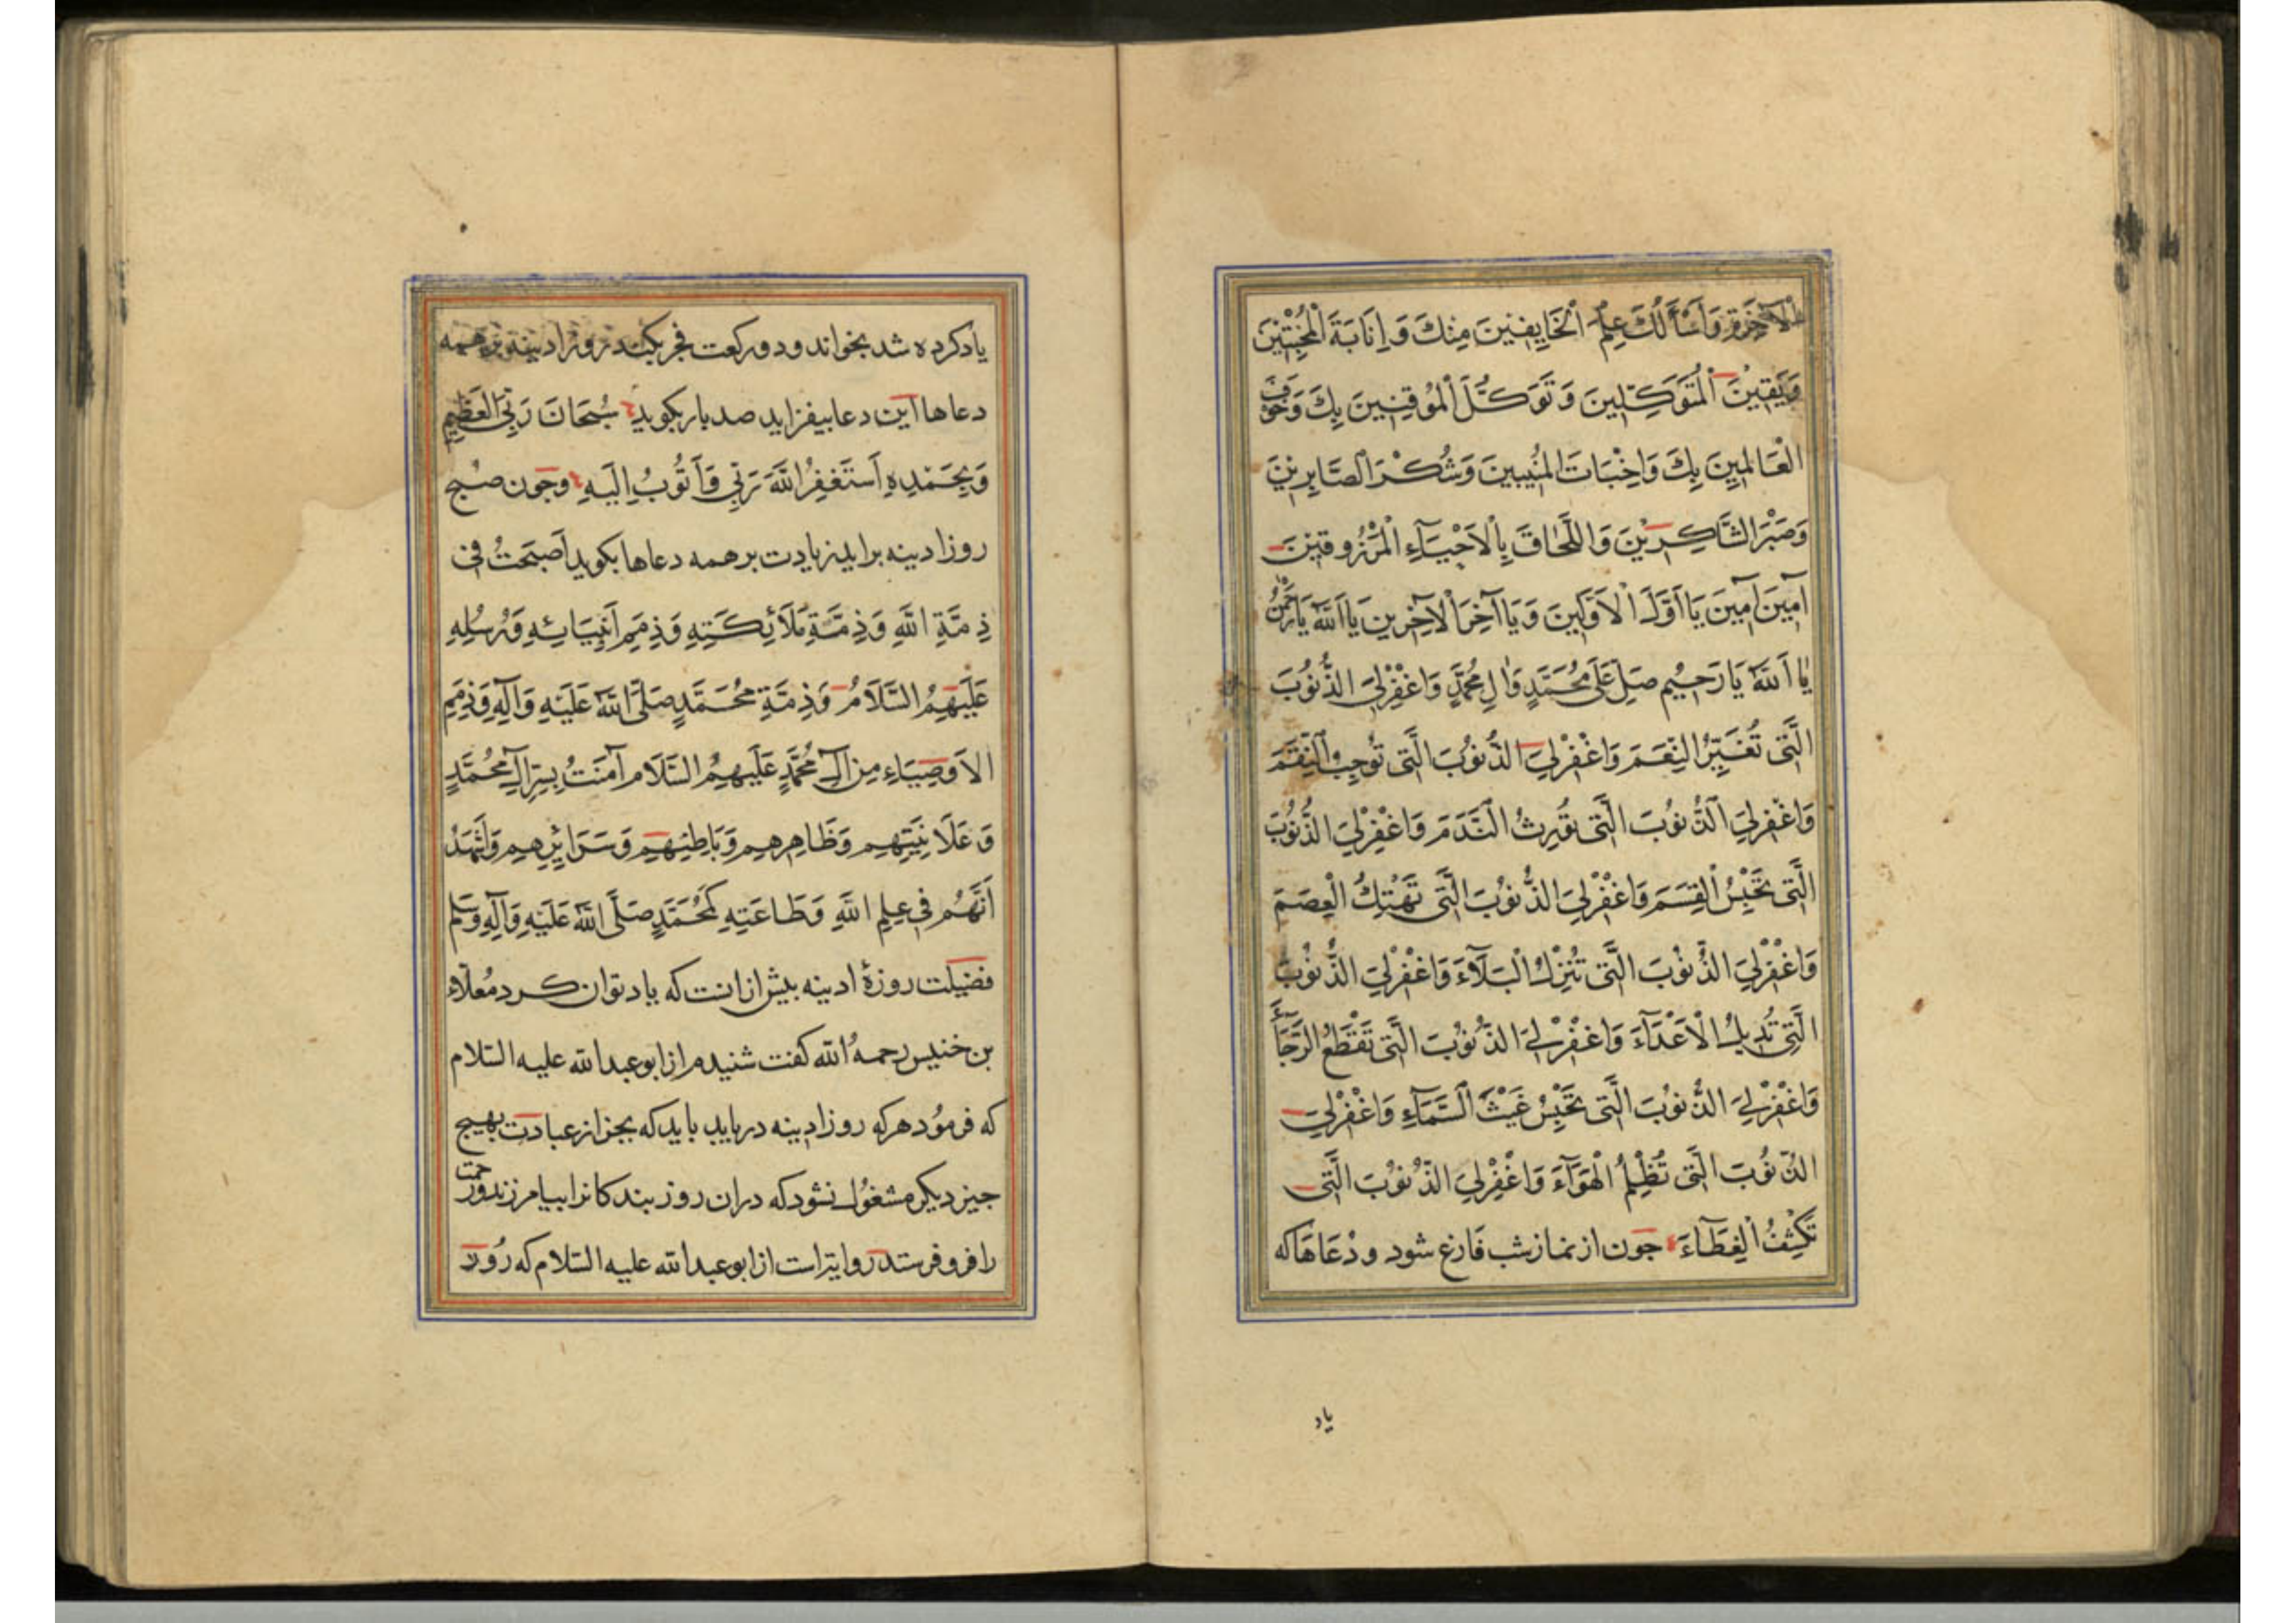 الْآخِرَةِ وَاَسْأَلُكَ عِلْمَ الْخَايِفِينَ مِنْكَ وَاِنَابَةَ الْمُخْبِتِينَ
وَيَقِينَ الْمُتَوَكِّلِينَ وَتَوَكُّلَ الْمُوقِنِينَ بِكَ وَخَوْفَ
الْعَالِمِينَ بِكَ وَاِخْبَاتَ الْمُنِيبِينَ وَشُكْرَ الصَّابِرِينَ
وَصَبْرَ الشَّاكِرِينَ وَاللَّحَاقَ بِالْاَحْيَآءِ الْمَرْزُوقِينَ
آمِينَ آمِينَ يَا اَوَّلَ الْاَوَّلِينَ وَيَا آخِرَ الْآخِرِينَ يَا اَللّٰهُ يَا رَحْمٰنُ
يَا اَللّٰهُ يَا رَحِيمُ صَلِّ عَلَى مُحَمَّدٍ وَآلِ مُحَمَّدٍ وَاغْفِرْ لِيَ الذُّنُوبَ
الَّتِي تُغَيِّرُ النِّعَمَ وَاغْفِرْ لِيَ الذُّنُوبَ الَّتِي تُوجِبُ النِّقَمَ
وَاغْفِرْ لِيَ الذُّنُوبَ الَّتِي تُورِثُ النَّدَمَ وَاغْفِرْ لِيَ الذُّنُوبَ
الَّتِي تَحْبِسُ الْقِسَمَ وَاغْفِرْ لِيَ الذُّنُوبَ الَّتِي تَهْتِكُ الْعِصَمَ
وَاغْفِرْ لِيَ الذُّنُوبَ الَّتِي تُنْزِلُ الْبَلَآءَ وَاغْفِرْ لِيَ الذُّنُوبَ
الَّتِي تُدِيلُ الْاَعْدَآءَ وَاغْفِرْ لِيَ الذُّنُوبَ الَّتِي تَقْطَعُ الرَّجَآءَ
وَاغْفِرْ لِيَ الذُّنُوبَ الَّتِي تَحْبِسُ غَيْثَ السَّمَآءِ وَاغْفِرْ لِيَ
الذُّنُوبَ الَّتِي تُظْلِمُ الْهَوَآءَ وَاغْفِرْ لِيَ الذُّنُوبَ الَّتِي
تَكْشِفُ الْغِطَآءَ جون از نماز شب فارغ شود و دعاها كه
ياد
ياد كرده شد بخواند و دو ركعت فجر بكند روز ادينه بر همه
دعاها اين دعا بيفزايد صد بار بكويد سُبْحَانَ رَبِّيَ الْعَظِيمِ
وَبِحَمْدِهِ اَسْتَغْفِرُ اللّٰهَ رَبِّي وَاَتُوبُ اِلَيْهِ وجون صبح
روز ادينه برايد زيادت بر همه دعاها بكويد اَصْبَحْتُ فِي
ذِمَّةِ اللّٰهِ وَذِمَّةِ مَلَائِكَتِهِ وَذِمَمِ اَنْبِيَائِهِ وَرُسُلِهِ
عَلَيْهِمُ السَّلَامُ وَذِمَّةِ مُحَمَّدٍ صَلَّى اللّٰهُ عَلَيْهِ وَآلِهِ وَذِمَمِ
الْاَوْصِيَاءِ مِنْ آلِ مُحَمَّدٍ عَلَيْهِمُ السَّلَام آمَنْتُ بِسِرِّ آلِ مُحَمَّدٍ
وَعَلَانِيَتِهِم وَظَاهِرِهِم وَبَاطِنِهِم وَسَرَائِرِهِم وَاَشْهَدُ
اَنَّهُم فِي عِلْمِ اللّٰهِ وَطَاعَتِهِ كَمُحَمَّدٍ صَلَّى اللّٰهُ عَلَيْهِ وَآلِهِ وَسَلَّم
فضيلت روزهٔ ادينه بيش از انست كه ياد توان كرد مُعلّاء
بن خنيس رحمه الله كفت شنيدم از ابو عبد الله عليه السّلام
كه فرمُود هركه روز ادينه دريابد بايد كه بجز از عبادت بهيج
جيز ديكر مشغُول نشود كه دران روز بندكانرا بيامرزند ورحمت
را فرو فرستد روايتست از ابو عبد الله عليه السّلام كه رُوز